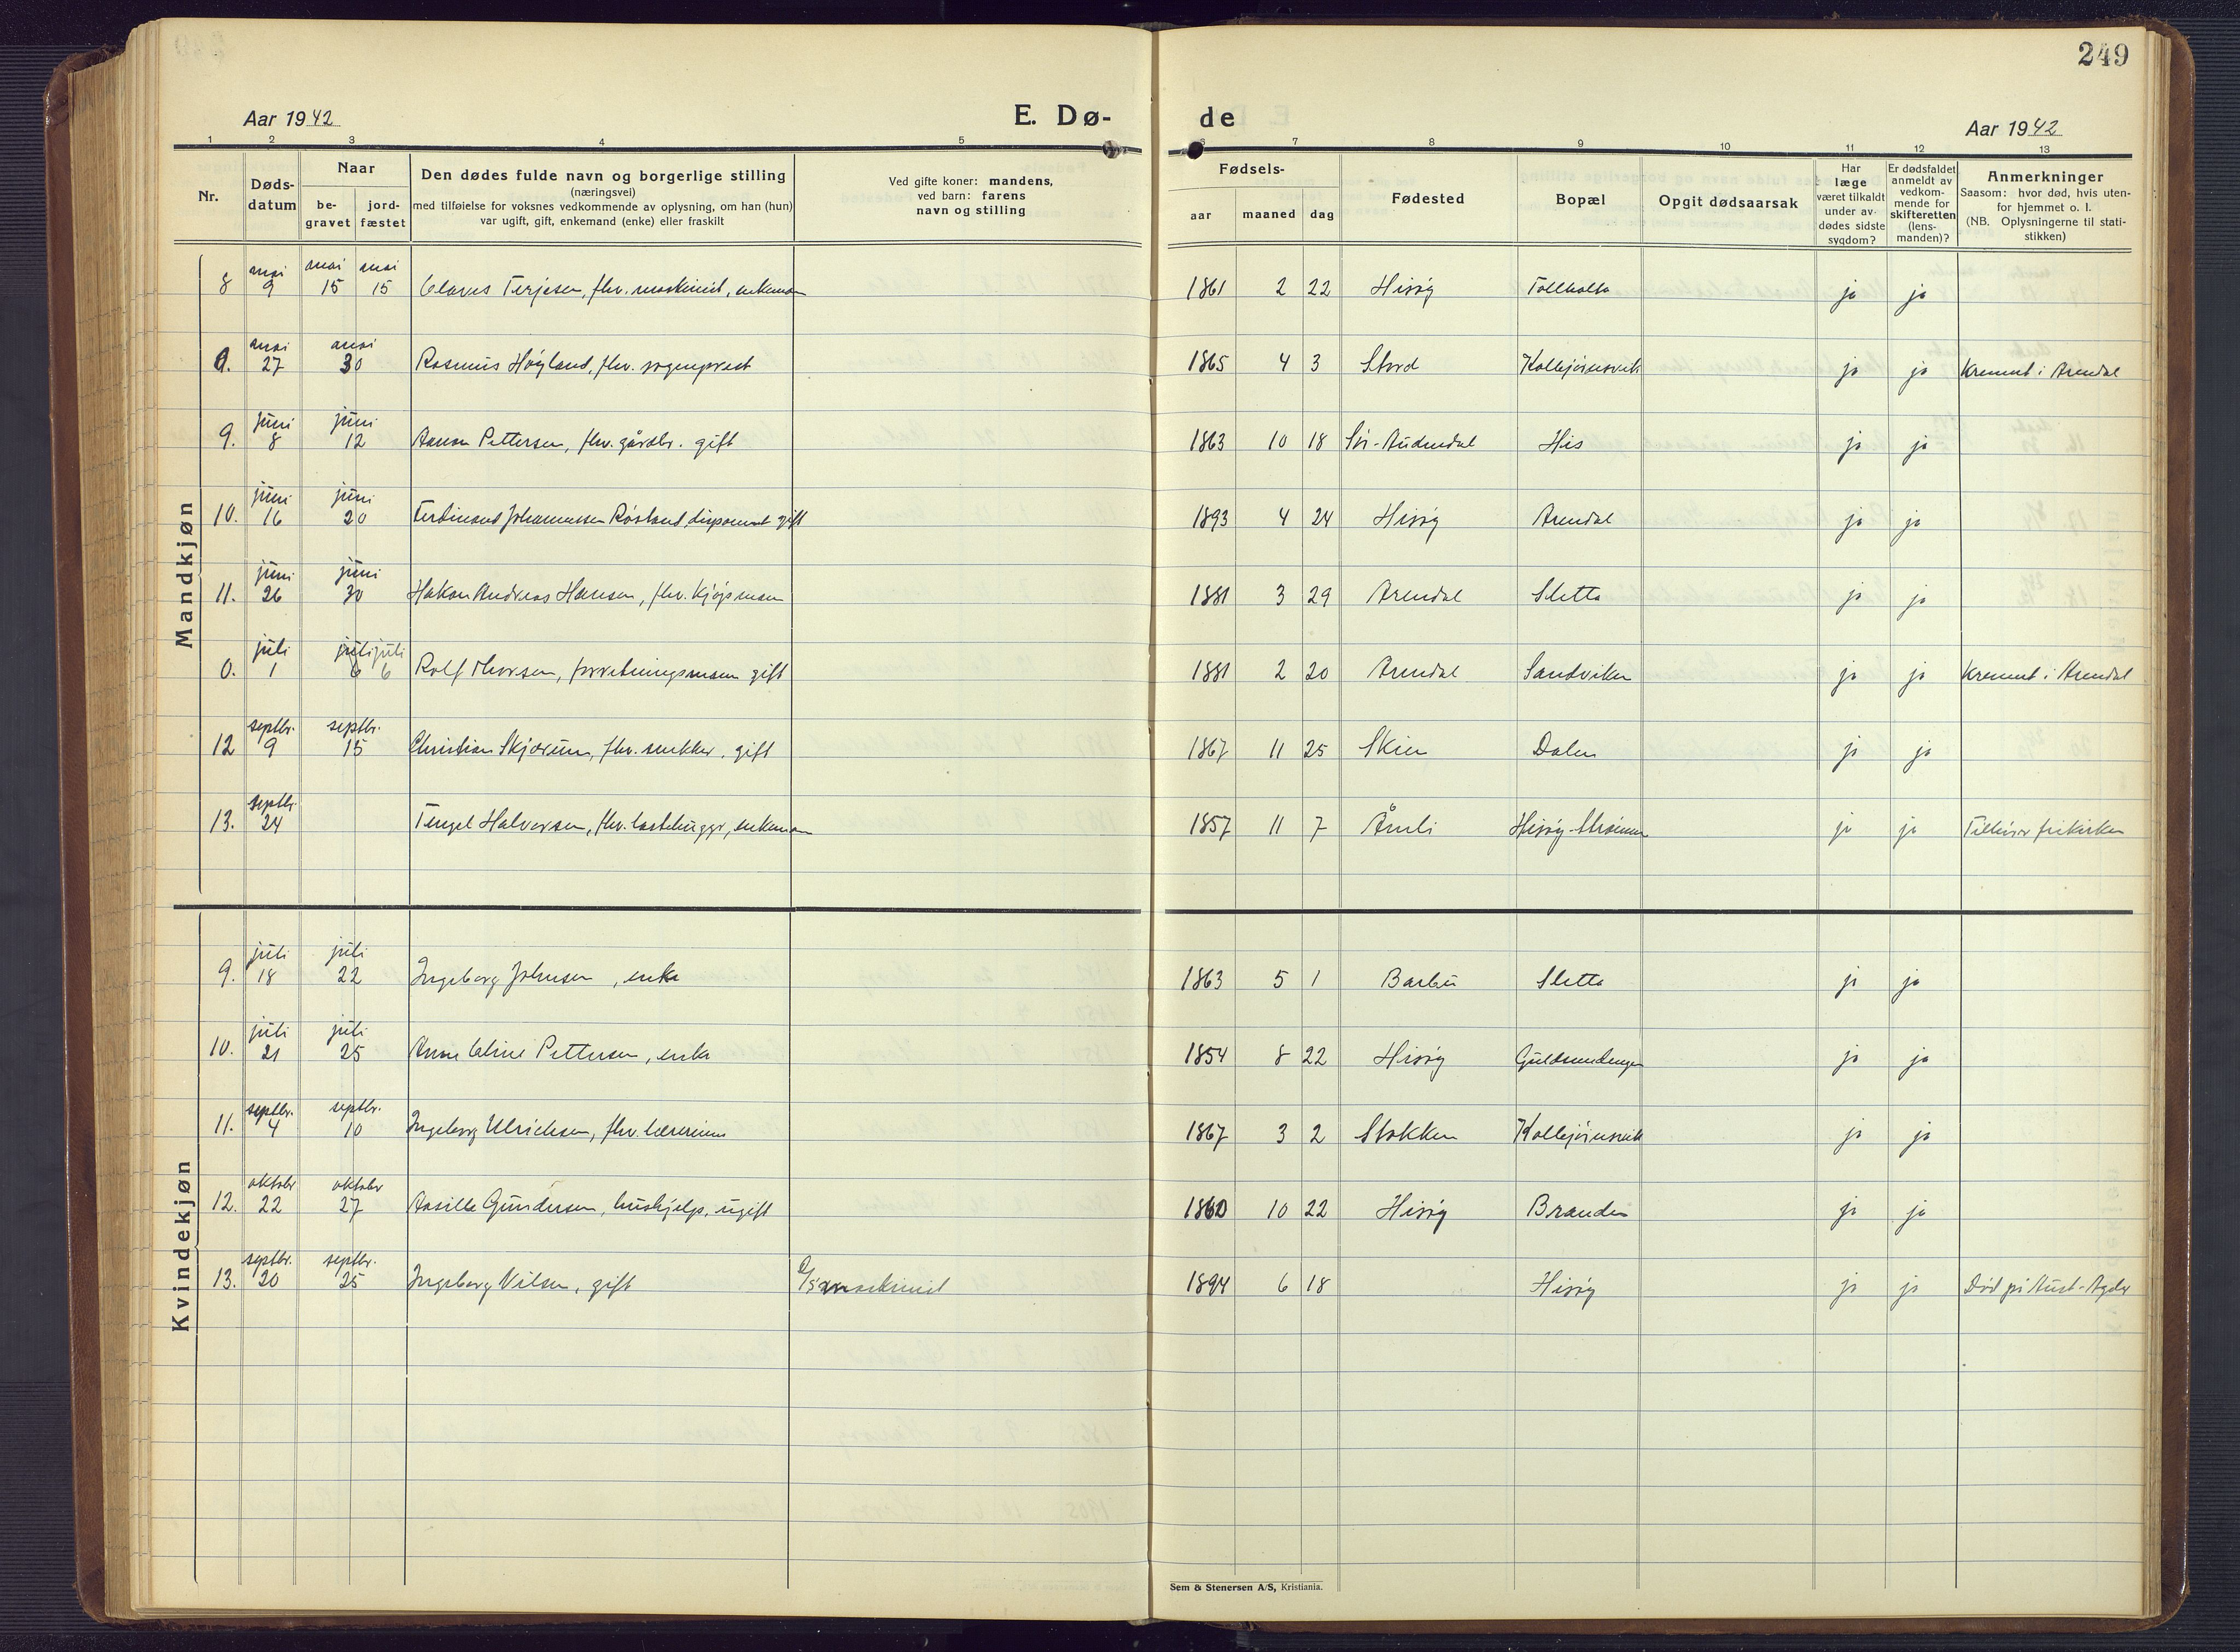 249
Aar 1942
E. Dø-
de
Aar 1942
1 2 3 4 5
6 7 8 9 10 11 12 13
Nr.
Døds-
datum
Naar
be-
gravet
jord-
fæstet
Den dødes fulde navn og borgerlige stilling
(næringsvei)
med tilføielse for voksnes vedkommende av oplysning, om han (hun)
var ugift, gift, enkemand (enke) eller fraskilt
Ved gifte koner: mandens,
ved barn: farens
navn og stilling
Fødsels-
aar maaned dag
Fødested
Bopæl
Opgit dødsaarsak
Har
læge
været tilkaldt
under av-
dødes sidste
sygdom?
Er dødsfaldet
anmeldt av
vedkom-
mende for
skifteretten
(lens-
manden)?
Anmerkninger
Saasom: hvor død, hvis uten-
for hjemmet o. l.
(NB. Oplysningerne til stati-
stikken)
Mandkjøn
mai mai mai
8 9 15 15 Olaves Terjesen, fhv. maskinist, enkeman 1861 2 22 Hisøy ja ja
mai mai
0. 27 30 Rasmus Høyland, fhv. sogneprest 1865 4 3 Stord Kolbjørnsvik ja ja Kremert i Arendal
juni juni
9. 8 12 Pettersen, fhv. gårdbr. gift 1863 10 18 Sør-Audnedal His ja ja
juni juni
10. 16 20 Ferdinand Johannessen Røstand, disponent gift 1893 4 24 Hisøy Arendal ja ja
juni juni
11. 26 30 Håkon Andreas Hansen, fhv. kjøpmann 1881 3 29 Arendal Sletta ja ja
juli juli juli
0. 1 6 6 Rolf Thorsen, forretningsmann gift 1881 2 20 Arendal Sandviken ja ja Kremert i Arendal
septbr. septbr.
12 9 15 Christian Skjærum, fhv. snekker, gift 1867 11 25 Skien Dalen ja ja
septbr.
13. 24 Tengel Halvorsen, fhv. lastehugger, enkeman 1857 11 7 Åmli Hisøy-Strømmen ja ja Tilhører frikirken
Kvindekjøn
juli juli
9. 18 22 Ingeborg Johnsen, enke 1863 5 1 Barbu Sletta ja ja
juli juli
10. 21 25 Anne Oline Pettersen, enke 1854 8 22 Hisøy Guldsmedengen ja ja
septbr. septbr.
11. 4 10 Ingeborg Ulrichsen, fhv. lærerinne 1867 3 2 Stokken Kolbjørnsvik ja ja
oktober oktober
12. 22 27 Aasille Gundersen, hushjelp, ugift 1860 10 22 Hisøy Branden ja ja
septbr. septbr.
13. 20 25 Ingeborg Nilsen, gift maskinist 1894 6 18 Hisøy ja ja Død på Aust-Agder
Sem & Stenersen A/S, Kristiania.